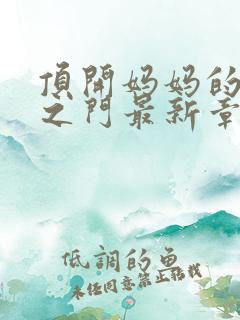 頂開妈妈的
之门最新章
低調的魚
未经同意禁止转载